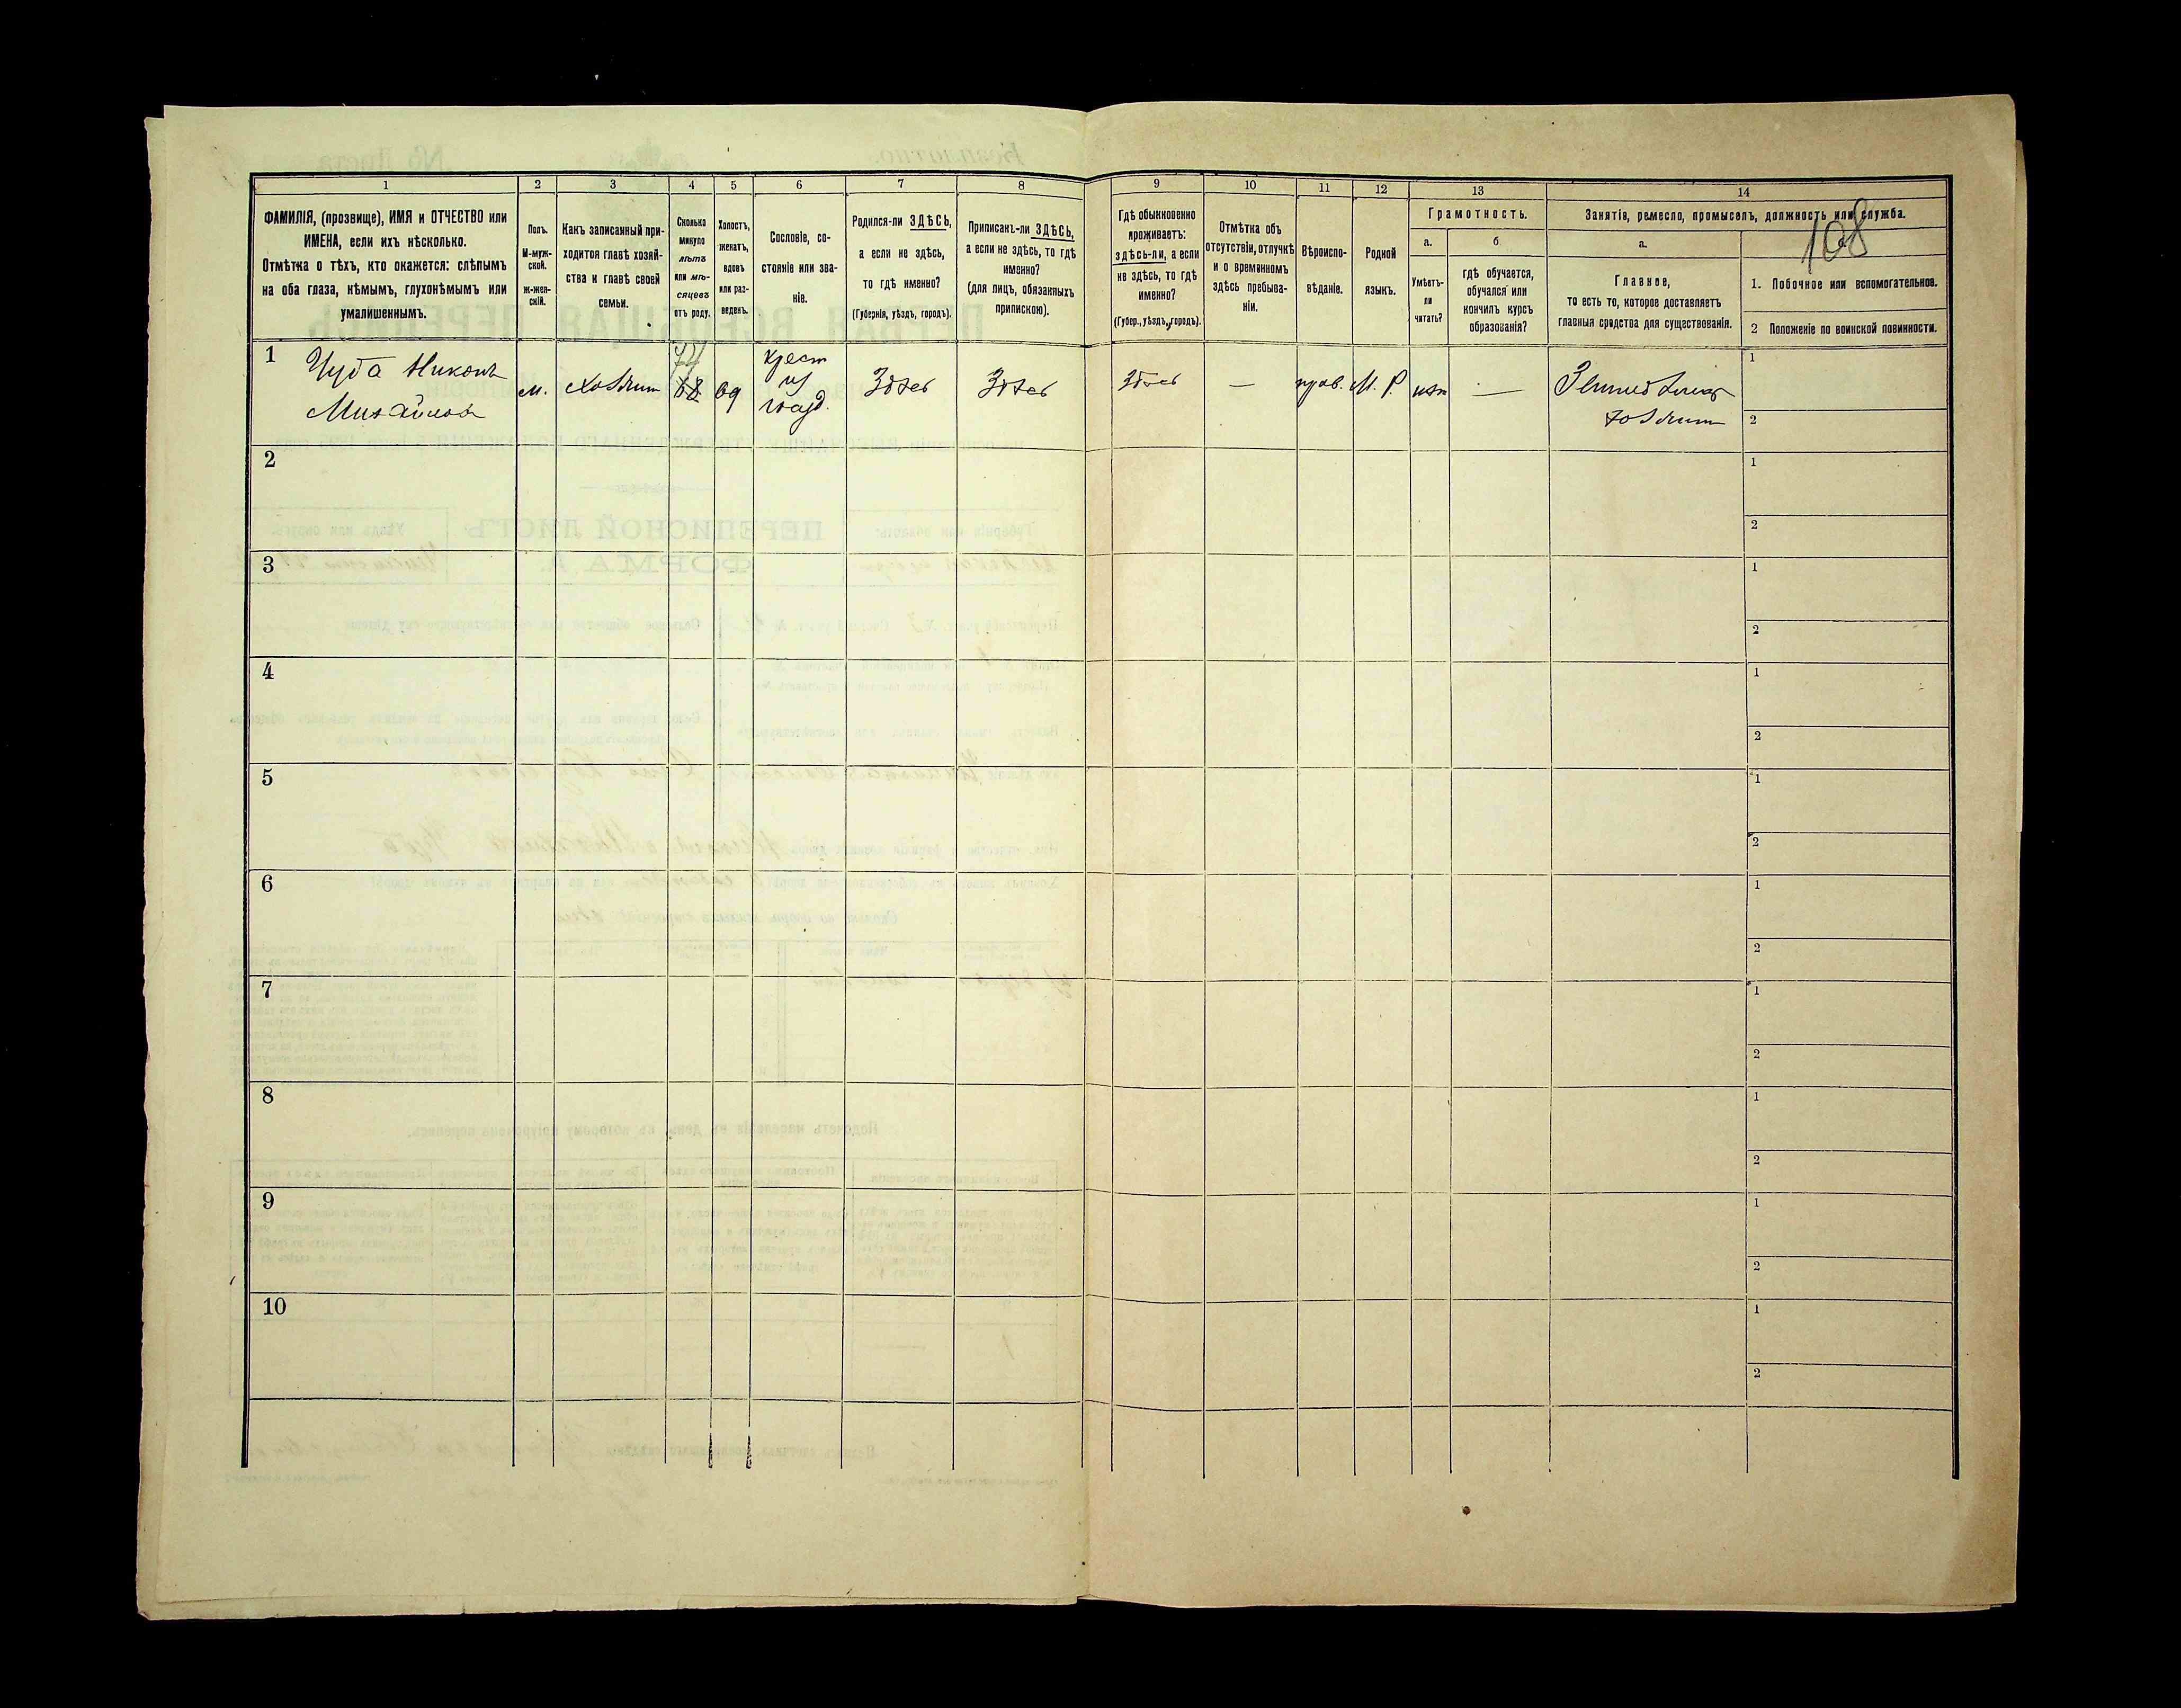 108
1 2 3 4 5 6 7 8 9 10 11 12 13 14
ФАМИЛІЯ, (прозвище), ИМЯ и ОТЧЕСТВО или
ИМЕНА, если ихъ нѣсколько.
Отмѣтка о тѣхъ, кто окажется: слѣпымъ
на оба глаза, нѣмымъ, глухонѣмымъ или
умалишеннымъ.
Полъ.
М-муж-
ской.
Ж-жен-
скій.
Какъ записанный при-
ходится главѣ хозяй-
ства и главѣ своей
семьи.
Сколько
минуло
лѣтъ
или мѣ-
сяцевъ
отъ роду.
Холостъ,
женатъ,
вдовъ
или раз-
веденъ.
Сословіе, со-
стояніе или зва-
ніе.
Родился-ли ЗДѢСЬ,
а если не здѣсь,
то гдѣ именно?
(Губернія, уѣздъ, городъ).
Приписанъ-ли ЗДѢСЬ,
а если не здѣсь, то гдѣ
именно?
(для лицъ, обязанныхъ
припискою).
Гдѣ обыкновенно
проживаетъ:
здѣсь-ли, а если
не здѣсь, то гдѣ
именно?
(Губер., уѣздъ, городъ).
Отмѣтка объ
отсутствіи, отлучкѣ
и о временномъ
здѣсь пребыва-
ніи.
Вѣроиспо-
вѣданіе.
Родной
языкъ.
Грамотность.
а.
Умѣетъ-
ли
читать?
б
гдѣ обучается,
обучался или
кончилъ курсъ
образованія?
Занятія, ремесло, промыселъ, должность или служба.
а.
Главное,
то есть то, которое доставляетъ
главныя средства для существованія.
1. Побочное или вспомогательное.
2 Положеніе по воинской повинности.
1
Чуба Никонъ
Михайловъ
м.
хозяин
68
вд
крест
из
влад.
Здѣсь
Здѣсь
Здѣсь
—
прав.
М. Р.
нѣт
—
хозяин
1
2
2
1
2
3
1
2
4
1
2
5
1
2
6
1
2
7
1
2
8
1
2
9
1
2
10
1
2